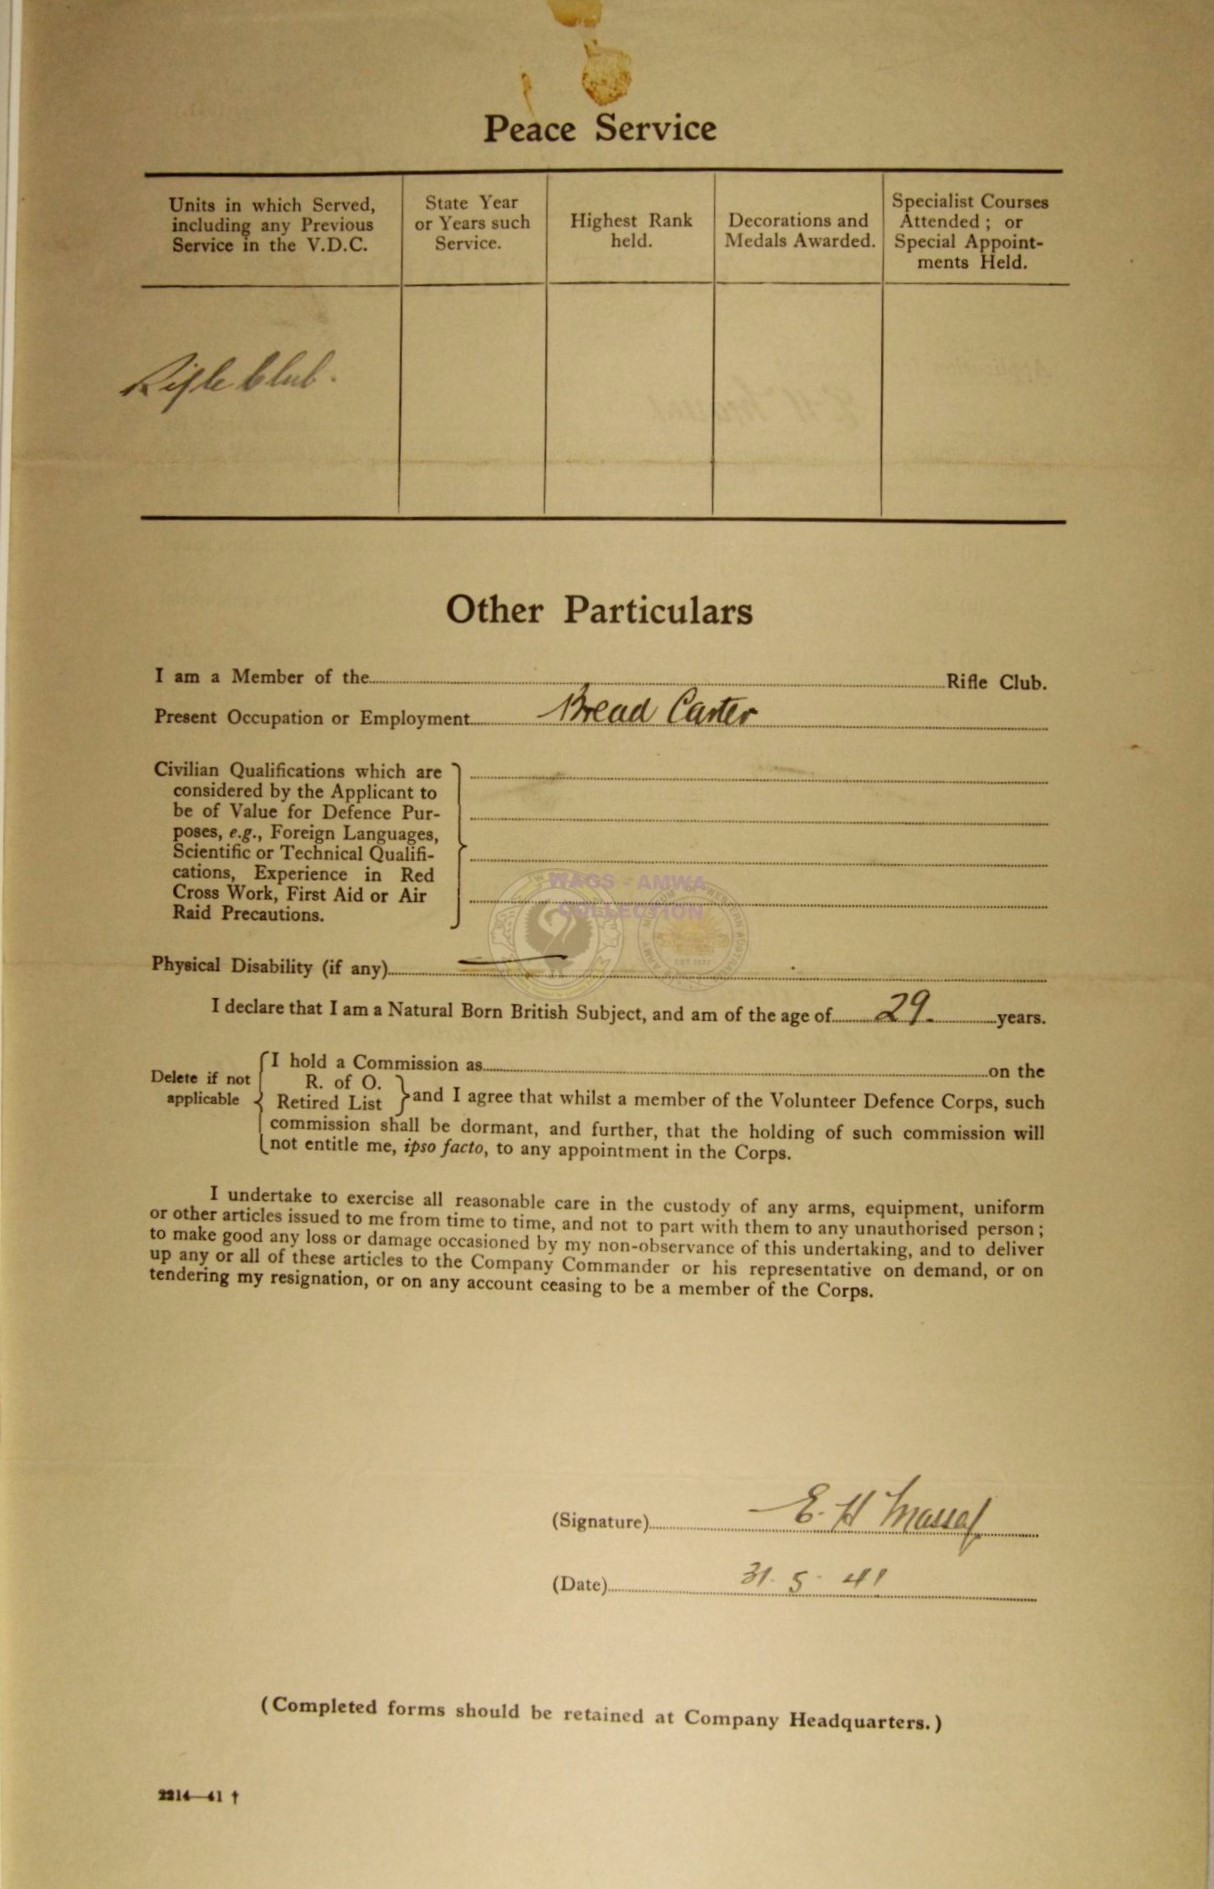 Peace Service
Units in which Served,
including any Previous
Service in the V.D.C.
State Year
or Years such
Service.
Highest Rank
held.
Decorations and
Medals Awarded.
Specialist Courses
Attended ; or
Special Appoint-
ments Held.
Rifle Club.
Other Particulars
I am a Member of the Rifle Club.
Present Occupation or Employment Bread Carter
Civilian Qualifications which are
considered by the Applicant to
be of Value for Defence Pur-
poses, e.g., Foreign Languages,
Scientific or Technical Qualifi-
cations, Experience in Red
Cross Work, First Aid or Air
Raid Precautions.
WAGS - AMWA
COLLECTION
Physical Disability (if any) —
I declare that I am a Natural Born British Subject, and am of the age of 29. years.
Delete if not
applicable
I hold a Commission as on the
R. of O.
Retired List
and I agree that whilst a member of the Volunteer Defence Corps, such
commission shall be dormant, and further, that the holding of such commission will
not entitle me, ipso facto, to any appointment in the Corps.
I undertake to exercise all reasonable care in the custody of any arms, equipment, uniform
or other articles issued to me from time to time, and not to part with them to any unauthorised person ;
to make good any loss or damage occasioned by my non-observance of this undertaking, and to deliver
up any or all of these articles to the Company Commander or his representative on demand, or on
tendering my resignation, or on any account ceasing to be a member of the Corps.
(Signature) E. H
(Date) 31. 5. 41
(Completed forms should be retained at Company Headquarters.)
2214—41 †